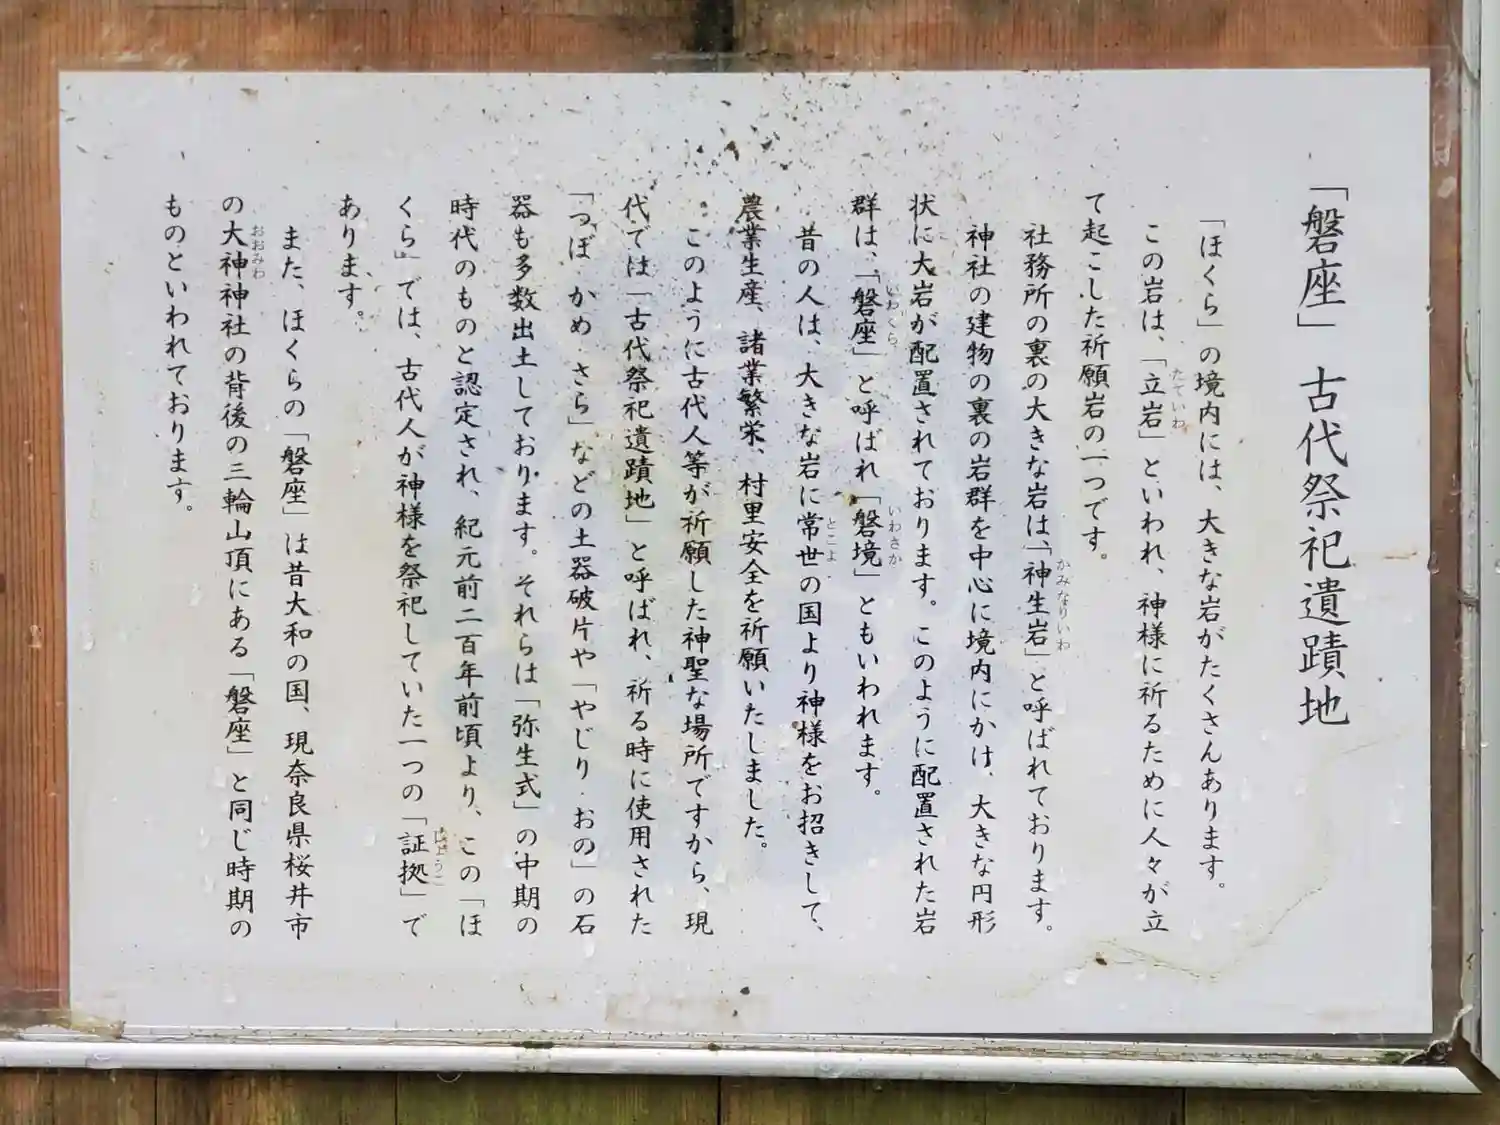 「磐座」古代祭祀遺蹟地
「ほくら」の境内には、大きな岩がたくさんあります。
この岩は、「立岩」といわれ、神様に祈るために人々が立
たていわ
て起こした祈願岩の一つです。
社務所の裏の大きな岩は、「神生岩」と呼ばれております。
かみなりいわ
神社の建物の裏の岩群を中心に境内にかけ、大きな円形
状に大岩が配置されております。このように配置された岩
群は、「磐座」と呼ばれ「磐境」ともいわれます。
いわくら
いわさか
昔の人は、大きな岩に常世の国より神様をお招きして、
とこよ
農業生産、諸業繁栄、村里安全を祈願いたしました。
このように古代人等が祈願した神聖な場所ですから、現
代では「古代祭祀遺蹟地」と呼ばれ、祈る時に使用された
「つぼ かめ さら」などの土器破片や「やじり おの」の石
器も多数出土しております。それらは「弥生式」の中期の
時代のものと認定され、紀元前二百年前頃より、この「ほ
くら」では、古代人が神様を祭祀していた一つの「証拠」で
しょうこ
あります。
また、ほくらの「磐座」は昔大和の国、現奈良県桜井市
の大神神社の背後の三輪山頂にある「磐座」と同じ時期の
おおみわ
ものといわれております。